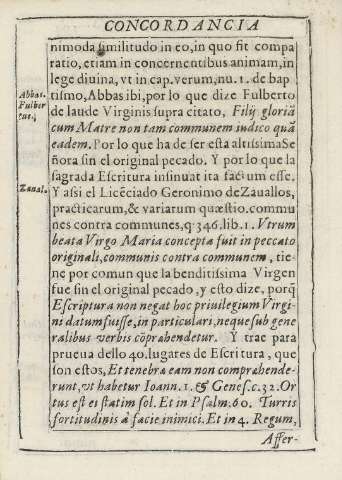 CONCORDANCIA
nimoda similitudo in eo, in quo fit compa
ratio, etiam in concernentibus animam, in
lege diuina, vt in cap. verum, nu. 1. de bap
Abbas. tismo, Abbas ibi, por lo que dize Fulberto
Fulber de laude Virginis supra citato, Filij gloriã
tus, cum Matre non tam communem iudico quã
eadem. Por lo que ha de ser esta altissima Se
ñora sin el original pecado. Y por lo que la
sagrada Escritura insinuat ita factum esse.
Zaual. Y assi el Licẽciado Geronimo de Zauallos,
practicarum, & variarum quæstio. commu
nes contra communes, q. 346. lib. 1. Vtrum
beata Virgo Maria concepta fuit in peccato
originali, communis contra communem, tie-
ne por comun que la benditissima Virgen
fue sin el original pecado, y esto dize, porq̃
Escriptura non negat hoc priuilegium Virgi
ni datum fuisse, in particulari, neque sub gene
ralibus verbis cõprahendetur. Y trae para
prueua dello 40. lugares de Escritura, que
son estos, Et tenebræ eam non comprahende-
runt, vt habetur Ioann. 1. & Genes. c. 32. Or
tus est ei statim sol. Et in Psalm. 60. Turris
fortitudinis à facie inimici. Et in 4. Regum,
Asser-